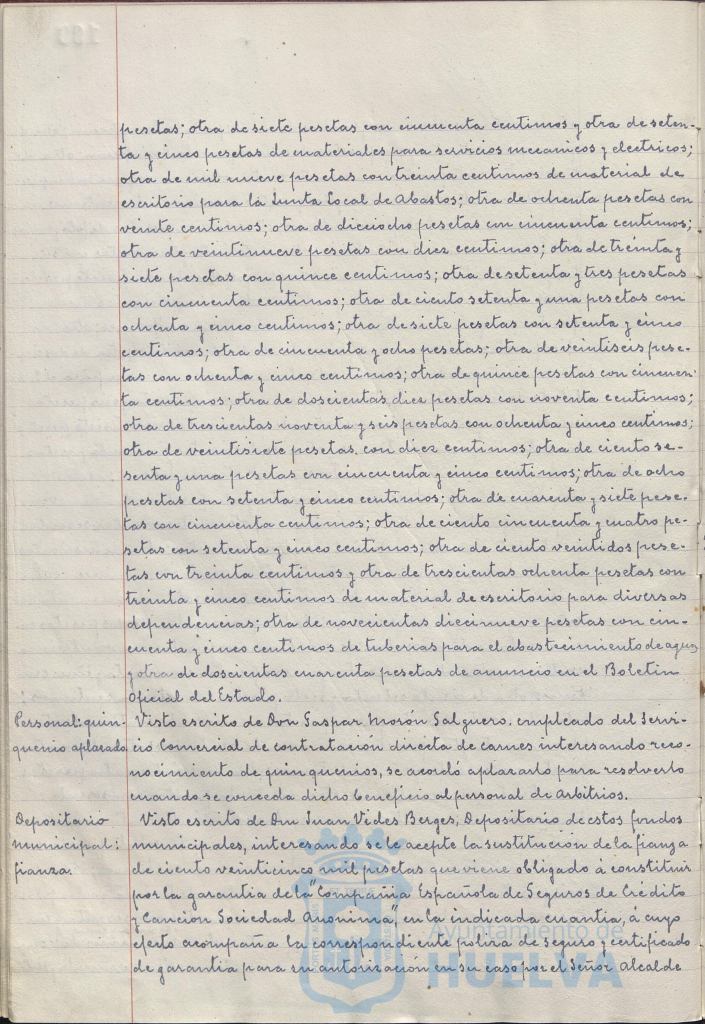 pesetas; otra de siete pesetas con cincuenta centimos y otra de seten-
ta y cinco pesetas de materiales para servicios mecanicos y electricos;
otra de mil nueve pesetas con treinta centimos de material de
escritorio para la Junta Local de Abastos; otra de ochenta pesetas con
veinte centimos; otra de dieciocho pesetas con cincuenta centimos;
otra de veintinueve pesetas con diez centimos; otra de treinta y
siete pesetas con quince centimos; otra de setenta y tres pesetas
con cincuenta centimos; otra de ciento setenta y una pesetas con
ochenta y cinco centimos; otra de siete pesetas con setenta y cinco
centimos; otra de cincuenta y ocho pesetas; otra de veintiseis pese-
tas con ochenta y cinco centimos; otra de quince pesetas con cincuen-
ta centimos; otra de doscientas diez pesetas con noventa centimos;
otra de trescientas noventa y seis pesetas con ochenta y cinco centimos;
otra de veintisiete pesetas con diez centimos; otra de ciento se-
senta y una pesetas con cincuenta y cinco centimos; otra de ocho
pesetas con setenta y cinco centimos; otra de cuarenta y siete pese-
tas con cincuenta centimos; otra de ciento cincuenta y cuatro pe-
setas con setenta y cinco centimos; otra de ciento veintidos pese-
tas con treinta centimos y otra de trescientas ochenta pesetas con
treinta y cinco centimos de material de escritorio para diversas
dependencias; otra de novecientas diecinueve pesetas con cin-
cuenta y cinco centimos de tuberias para el abastecimiento de aguas
y otra de doscientas cuarenta pesetas de anuncio en el Boletin
Oficial del Estado.
Personal: quin-
quenio aplazado
Visto escrito de Don Gaspar Morón Salguero. empleado del Servi-
cio Comercial de contratación directa de carnes interesando reco-
nocimiento de quinquenios, se acordó aplazarlo para resolverlo
cuando se conceda dicho beneficio al personal de Arbitrios.
Depositario
municipal:
fianza.
Visto escrito de Don Juan Vides Berges, Depositario de estos fondos
municipales, interesando se le acepte la sustitución de la fianza
de ciento veinticinco mil pesetas que viene obligado á constituir
por la garantia de la "Compañia Española de Seguros de Crédito
y Caución Sociedad Anonima", en la indicada cuantia, á cuyo
efecto acompaña la correspondiente poliza de seguro y certificado
de garantia para su autorización en su caso por el Señor Alcalde
Ayuntamiento de
HUELVA